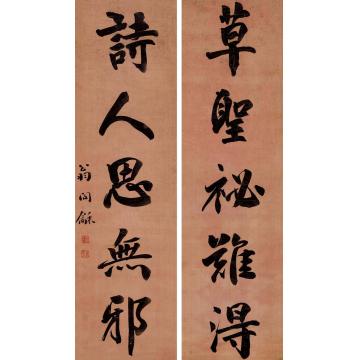 草聖祕難得
詩人思無邪
翁同龢